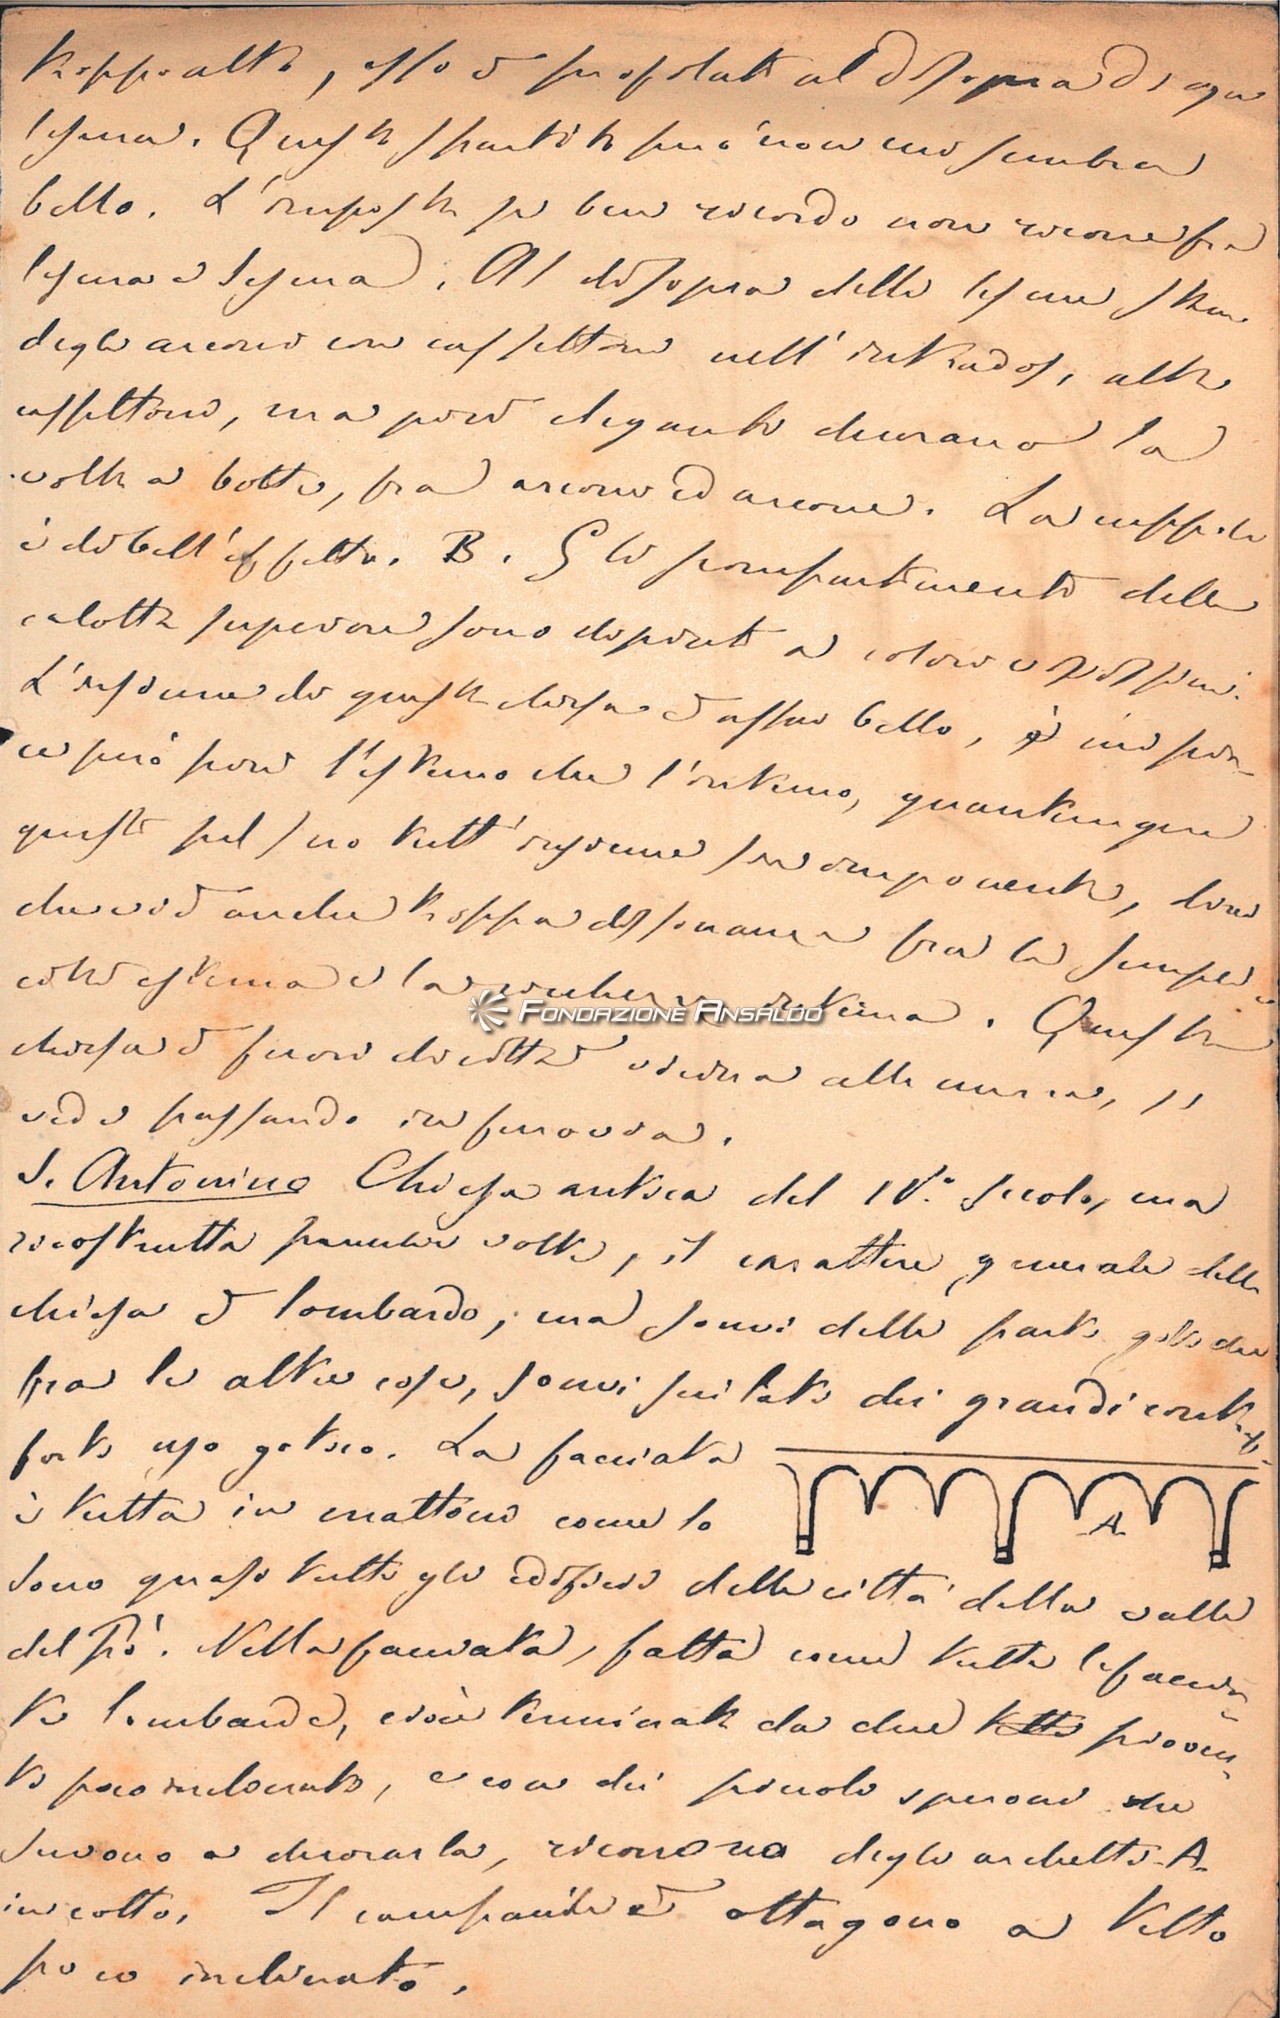 troppo alto, esso è profilato al disopra di ogni
lesena. Questo spartito però non mi sembra
bello. L'imposta se ben ricordo non ricorre fra
lesena e lesena. Al disopra delle lesene stan
degli arconi con cassettoni nell'intrados, altri
cassettoni, ma però eleganti decorano la
volta a botte, fra arcone ed arcone. La cuppola
è di bell'effetto. B. Gli scompartimenti della
calotta superiore sono dipinti a colori
L'insieme di questa chiesa è assai bello, a me
piace però più l'esterno che l'interno, quantunque
questo pel suo tutt'insieme sia imponente, dirò
che vi è anche troppa dissonanza fra la sempli
cità esterna e la ricchezza interna. Questa
chiesa è fuori di città vicina alle mura, si
vede passando in ferrovia.
S. Antonino Chiesa antica del IV.° secolo, ma
ricostrutta parecchie volte, il carattere generale della
chiesa è lombardo, ma sonvi delle parti gotiche
fra le altre cose, sonvi sui lati dei grandi contraf-
forti uso gotico. La facciata
è tutta in mattoni come lo
A
sono quasi tutti gli edifici delle città della valle
del Pò. Nella facciata, fatta come tutte le faccia
te lombarde, cioè terminate da due tetti pioven
ti poco inclinati, e con dei piccoli speroni che
servono a decorarla, ricorrono degli archetti A
in cotto. Il campanile è ottagono a tetto
poco inclinato.
FONDAZIONE ANSALDO